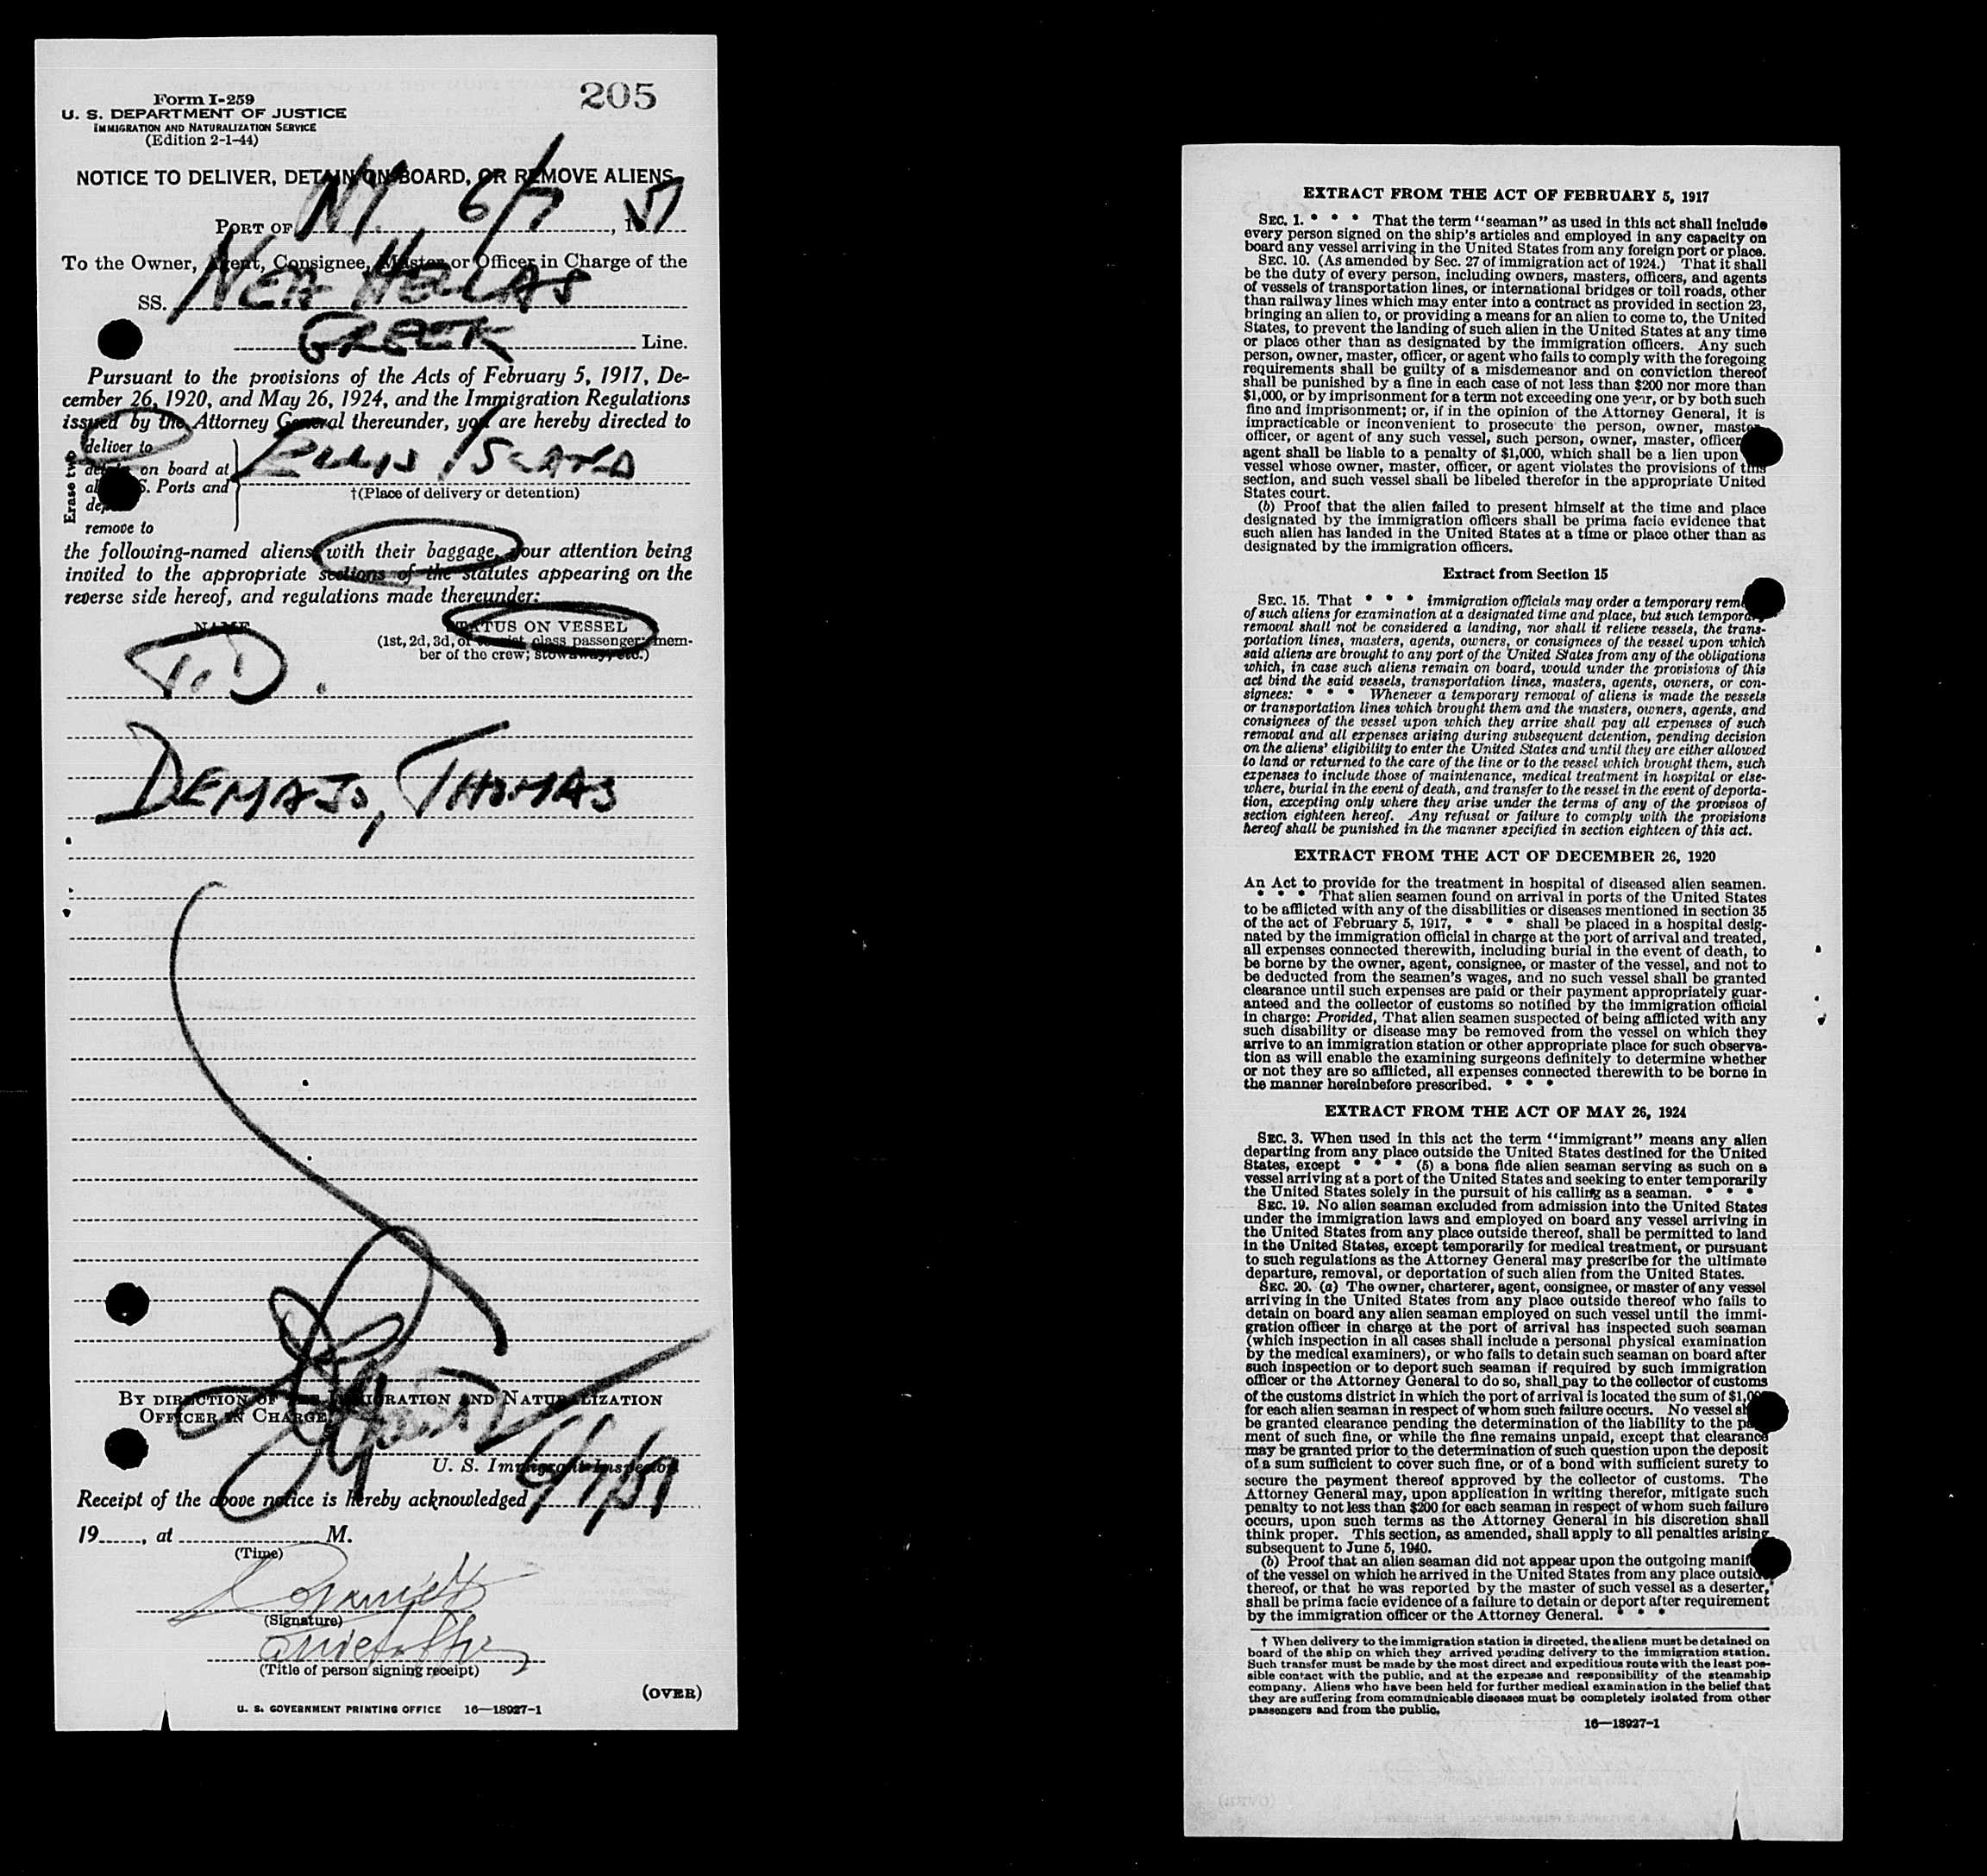 205
Form I-259
U. S. DEPARTMENT OF JUSTICE
IMMIGRATION AND NATURALIZATION SERVICE
(Edition 2-1-44)
NOTICE TO DELIVER, DETAIN ON BOARD, OR REMOVE ALIENS
PORT OF N.Y. 6/7, 151
To the Owner, Agent, Consignee, Master or Officer in Charge of the
SS. NEA HELLAS
GREEK Line.
Pursuant to the provisions of the Acts of February 5, 1917, De-
cember 26, 1920, and May 26, 1924, and the Immigration Regulations
issued by the Attorney General thereunder, you are hereby directed to
Erase two
deliver to
on board at
S. Ports and
remove to
ELLIS ISLAND
†(Place of delivery or detention)
the following-named aliens with their baggage, your attention being
invited to the appropriate sections of the statutes appearing on the
reverse side hereof, and regulations made thereunder:
NAME STATUS ON VESSEL
(1st, 2d, 3d, or tourist class passenger; mem-
ber of the crew; stowaway, etc.)
T.D.
DEMAJO, THOMAS
BY DIRECTION OF THE IMMIGRATION AND NATURALIZATION
OFFICER IN CHARGE
U. S. Immigrant Inspector
Receipt of the above notice is hereby acknowledged 6/7/51
19......, at .................... M.
(Time)
(Signature)
(Title of person signing receipt)
(OVER)
U. S. GOVERNMENT PRINTING OFFICE 16—18927-1
EXTRACT FROM THE ACT OF FEBRUARY 5, 1917
SEC. 1. * * * That the term "seaman" as used in this act shall include
every person signed on the ship's articles and employed in any capacity on
board any vessel arriving in the United States from any foreign port or place.
SEC. 10. (As amended by Sec. 27 of immigration act of 1924.) That it shall
be the duty of every person, including owners, masters, officers, and agents
of vessels of transportation lines, or international bridges or toll roads, other
than railway lines which may enter into a contract as provided in section 23,
bringing an alien to, or providing a means for an alien to come to, the United
States, to prevent the landing of such alien in the United States at any time
or place other than as designated by the immigration officers. Any such
person, owner, master, officer, or agent who fails to comply with the foregoing
requirements shall be guilty of a misdemeanor and on conviction thereof
shall be punished by a fine in each case of not less than $200 nor more than
$1,000, or by imprisonment for a term not exceeding one year, or by both such
fine and imprisonment; or, if in the opinion of the Attorney General, it is
impracticable or inconvenient to prosecute the person, owner, master,
officer, or agent of any such vessel, such person, owner, master, officer
agent shall be liable to a penalty of $1,000, which shall be a lien upon
vessel whose owner, master, officer, or agent violates the provisions of this
section, and such vessel shall be libeled therefor in the appropriate United
States court.
(b) Proof that the alien failed to present himself at the time and place
designated by the immigration officers shall be prima facie evidence that
such alien has landed in the United States at a time or place other than as
designated by the immigration officers.
Extract from Section 15
SEC. 15. That * * * immigration officials may order a temporary rem
of such aliens for examination at a designated time and place, but such temporary
removal shall not be considered a landing, nor shall it relieve vessels, the trans-
portation lines, masters, agents, owners, or consignees of the vessel upon which
said aliens are brought to any port of the United States from any of the obligations
which, in case such aliens remain on board, would under the provisions of this
act bind the said vessels, transportation lines, masters, agents, owners, or con-
signees: * * * Whenever a temporary removal of aliens is made the vessels
or transportation lines which brought them and the masters, owners, agents, and
consignees of the vessel upon which they arrive shall pay all expenses of such
removal and all expenses arising during subsequent detention, pending decision
on the aliens' eligibility to enter the United States and until they are either allowed
to land or returned to the care of the line or to the vessel which brought them, such
expenses to include those of maintenance, medical treatment in hospital or else-
where, burial in the event of death, and transfer to the vessel in the event of deporta-
tion, excepting only where they arise under the terms of any of the provisos of
section eighteen hereof. Any refusal or failure to comply with the provisions
hereof shall be punished in the manner specified in section eighteen of this act.
EXTRACT FROM THE ACT OF DECEMBER 26, 1920
An Act to provide for the treatment in hospital of diseased alien seamen.
* * * That alien seamen found on arrival in ports of the United States
to be afflicted with any of the disabilities or diseases mentioned in section 35
of the act of February 5, 1917, * * * shall be placed in a hospital desig-
nated by the immigration official in charge at the port of arrival and treated,
all expenses connected therewith, including burial in the event of death, to
be borne by the owner, agent, consignee, or master of the vessel, and not to
be deducted from the seamen's wages, and no such vessel shall be granted
clearance until such expenses are paid or their payment appropriately guar-
anteed and the collector of customs so notified by the immigration official
in charge: Provided, That alien seamen suspected of being afflicted with any
such disability or disease may be removed from the vessel on which they
arrive to an immigration station or other appropriate place for such observa-
tion as will enable the examining surgeons definitely to determine whether
or not they are so afflicted, all expenses connected therewith to be borne in
the manner hereinbefore prescribed. * * *
EXTRACT FROM THE ACT OF MAY 26, 1924
SEC. 3. When used in this act the term "immigrant" means any alien
departing from any place outside the United States destined for the United
States, except * * * (5) a bona fide alien seaman serving as such on a
vessel arriving at a port of the United States and seeking to enter temporarily
the United States solely in the pursuit of his calling as a seaman. * * *
SEC. 19. No alien seaman excluded from admission into the United States
under the immigration laws and employed on board any vessel arriving in
the United States from any place outside thereof, shall be permitted to land
in the United States, except temporarily for medical treatment, or pursuant
to such regulations as the Attorney General may prescribe for the ultimate
departure, removal, or deportation of such alien from the United States.
SEC. 20. (a) The owner, charterer, agent, consignee, or master of any vessel
arriving in the United States from any place outside thereof who fails to
detain on board any alien seaman employed on such vessel until the immi-
gration officer in charge at the port of arrival has inspected such seaman
(which inspection in all cases shall include a personal physical examination
by the medical examiners), or who fails to detain such seaman on board after
such inspection or to deport such seaman if required by such immigration
officer or the Attorney General to do so, shall pay to the collector of customs
of the customs district in which the port of arrival is located the sum of $1,00
for each alien seaman in respect of whom such failure occurs. No vessel sh
be granted clearance pending the determination of the liability to the pa
ment of such fine, or while the fine remains unpaid, except that clearance
may be granted prior to the determination of such question upon the deposit
of a sum sufficient to cover such fine, or of a bond with sufficient surety to
secure the payment thereof approved by the collector of customs. The
Attorney General may, upon application in writing therefor, mitigate such
penalty to not less than $200 for each seaman in respect of whom such failure
occurs, upon such terms as the Attorney General in his discretion shall
think proper. This section, as amended, shall apply to all penalties arising
subsequent to June 5, 1940.
(b) Proof that an alien seaman did not appear upon the outgoing manif
of the vessel on which he arrived in the United States from any place outside
thereof, or that he was reported by the master of such vessel as a deserter,
shall be prima facie evidence of a failure to detain or deport after requirement
by the immigration officer or the Attorney General. * * *
† When delivery to the immigration station is directed, the aliens must be detained on
board of the ship on which they arrived pending delivery to the immigration station.
Such transfer must be made by the most direct and expeditious route with the least pos-
sible contact with the public, and at the expense and responsibility of the steamship
company. Aliens who have been held for further medical examination in the belief that
they are suffering from communicable diseases must be completely isolated from other
passengers and from the public.
16—18927-1